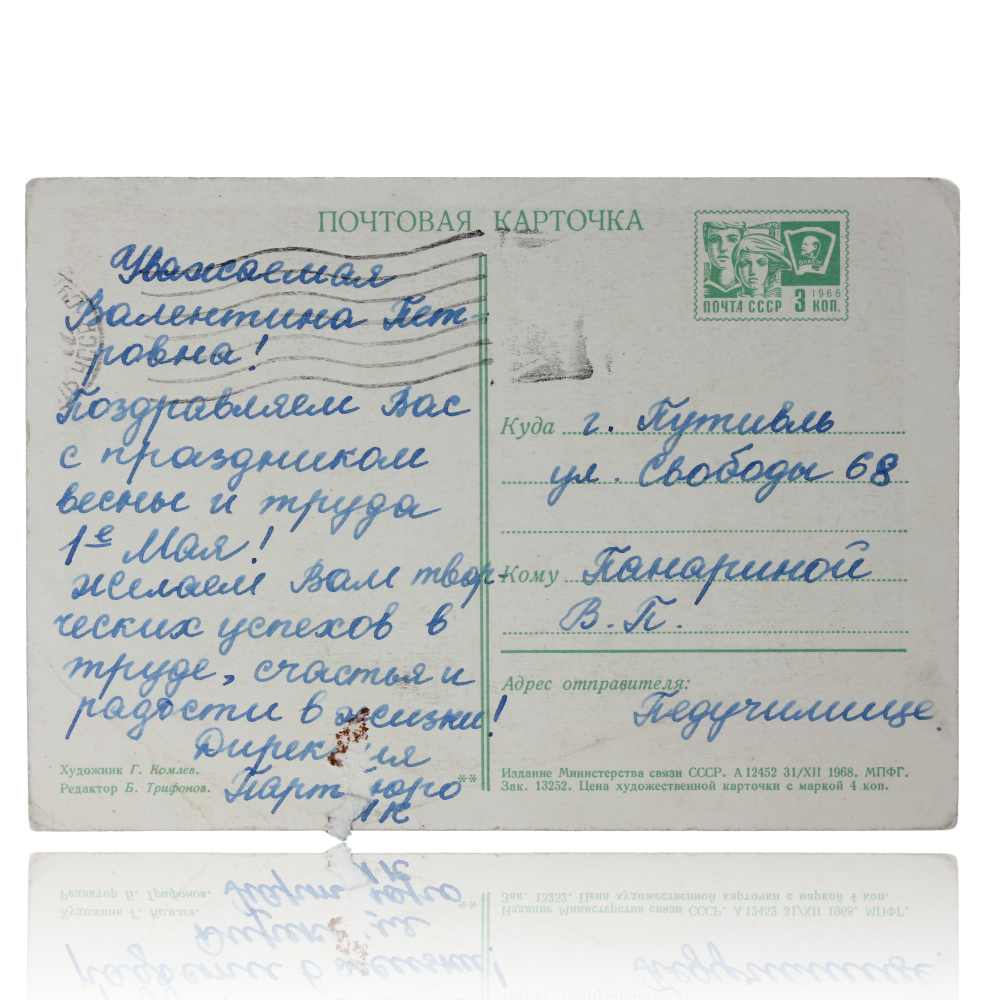 ПОЧТОВАЯ КАРТОЧКА
Уважаемая
Валентина Пет-
ровна!
Поздравляем Вас
с праздником
весны и труда
1е Мая!
желаем Вам твор-
ческих успехов в
труде, счастья и
радости в жизни!
Художник Г. Комлев.
Редактор Б. Трифонов.
**
ВЛКСМ
1966
ПОЧТА СССР 3 КОП.
Куда г. Путивль
ул. Свободы 68
Кому Панариной
В. П.
Адрес отправителя:
Педучилище.
Издание Министерства связи СССР. А 12452 31/XII 1968. МПФГ.
Зак. 13252. Цена художественной карточки с маркой 4 коп.